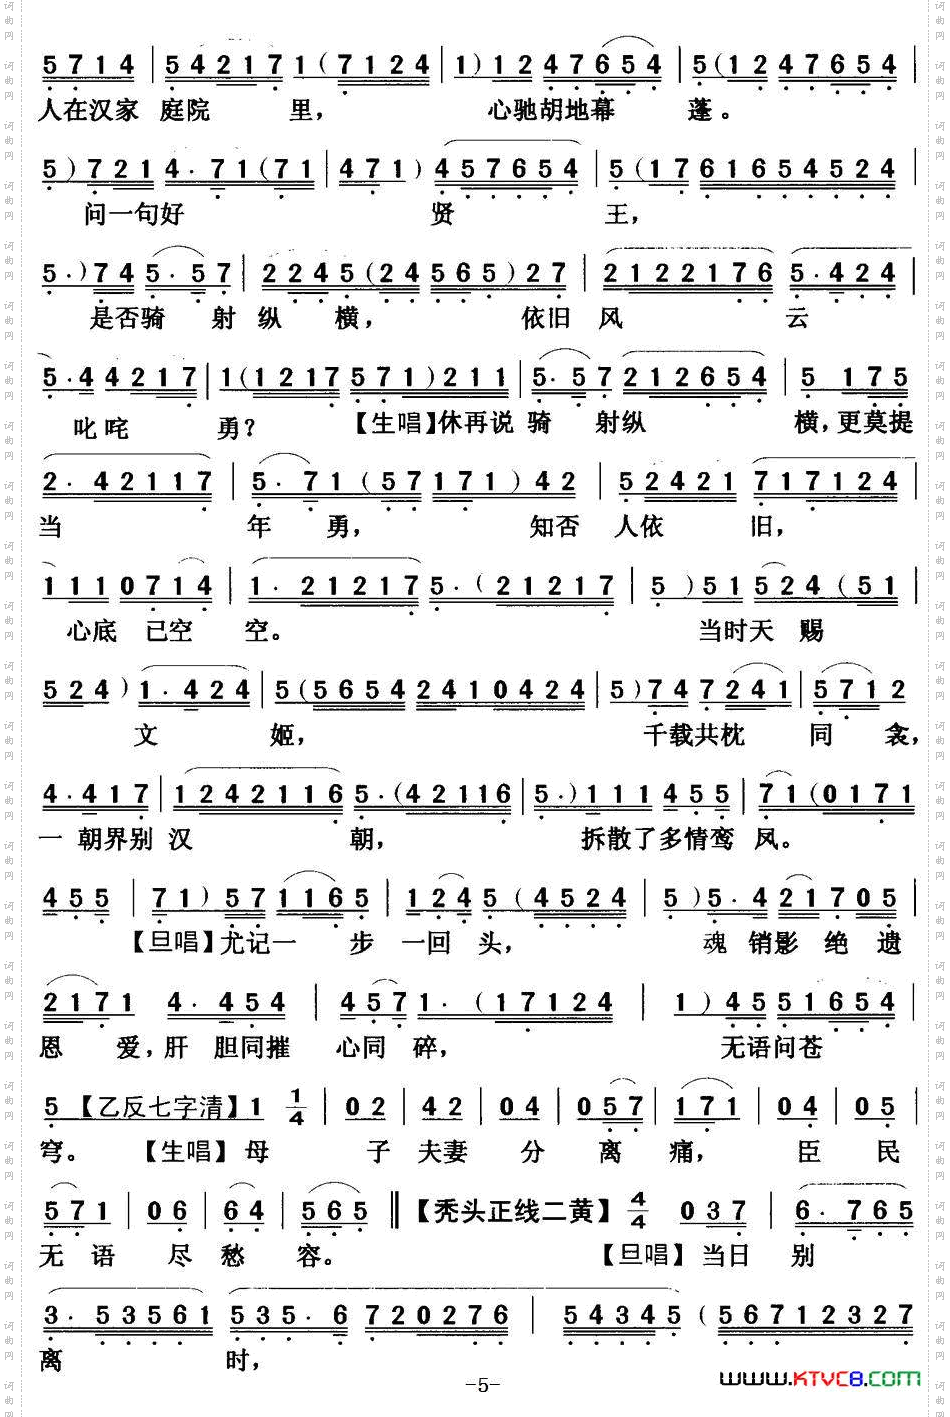 5 7 1 4 | 5 4 2 1 7 1 ( 7 1 2 4 | 1 ) 1 2 4 7 6 5 4 | 5 ( 1 2 4 7 6 5 4 |
人在汉家 庭院 里， 心驰胡地幕 蓬。
5 ) 7 2 1 4 · 7 1 ( 7 1 | 4 7 1 ) 4 5 7 6 5 4 | 5 ( 1 7 6 1 6 5 4 5 2 4 |
问一句好 贤 王，
5 · ) 7 4 5 · 5 7 | 2 2 4 5 ( 2 4 5 6 5 ) 2 7 | 2 1 2 2 1 7 6 5 · 4 2 4 |
是否骑 射 纵 横， 依旧 风 云
5 · 4 4 2 1 7 | 1 ( 1 2 1 7 5 7 1 ) 2 1 1 | 5 · 5 7 2 1 2 6 5 4 | 5 1 7 5
叱咤 勇？ 【生唱】休再说 骑 射纵 横，更莫提
2 · 4 2 1 1 7 | 5 · 7 1 ( 5 7 1 7 1 ) 4 2 | 5 2 4 2 1 7 1 7 1 2 4 |
当 年 勇， 知否 人依 旧，
1 1 1 0 7 1 4 | 1 · 2 1 2 1 7 5 · ( 2 1 2 1 7 | 5 ) 5 1 5 2 4 ( 5 1 |
心底 已空 空。 当时天 赐
5 2 4 ) 1 · 4 2 4 | 5 ( 5 6 5 4 2 4 1 0 4 2 4 | 5 ) 7 4 7 2 4 1 | 5 7 1 2
文 姬， 千载共枕 同 衾，
4 · 4 1 7 | 1 2 4 2 1 1 6 5 · ( 4 2 1 1 6 | 5 · ) 1 1 1 4 5 5 | 7 1 ( 0 1 7 1
一 朝界别 汉 朝， 拆散了多情鸾 凤。
4 5 5 | 7 1 ) 5 7 1 1 6 5 | 1 2 4 5 ( 4 5 2 4 | 5 ) 5 · 4 2 1 7 0 5 |
【旦唱】尤记一 步 一回 头， 魂 销影 绝 遗
2 1 7 1 4 · 4 5 4 | 4 5 7 1 · ( 1 7 1 2 4 | 1 ) 4 5 5 1 6 5 4 |
恩 爱，肝 胆同摧 心同 碎， 无语问苍
5 【乙反七字清】 1 1/4 | 0 2 | 4 2 | 0 4 | 0 5 7 | 1 7 1 | 0 4 | 0 5 |
穹。 【生唱】母 子 夫妻 分 离 痛， 臣 民
5 7 1 | 0 6 | 6 4 | 5 6 5 ‖ 【秃头正线二黄】 4/4 0 3 7 | 6 · 7 6 5
无 语 尽 愁 容。 【旦唱】当日 别
3 · 5 3 5 6 1 5 3 5 · 6 7 2 0 2 7 6 | 5 4 3 4 5 ( 5 6 7 1 2 3 2 7
离 时，
-5-
www.KTVC8.com